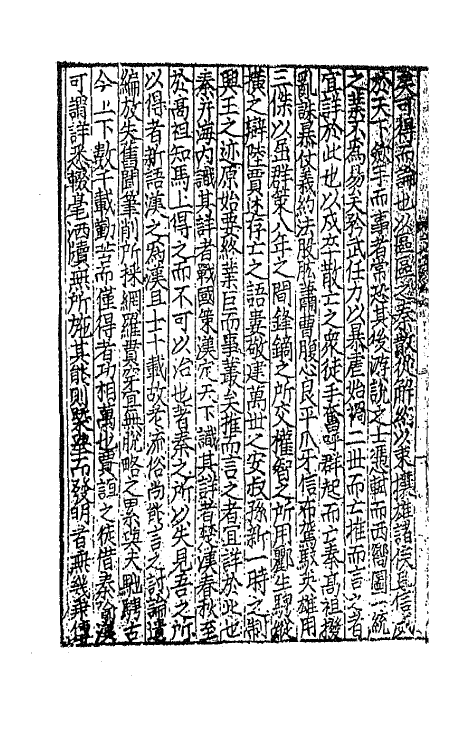 矣可得而論也以區區之秦散從解約以東攘雄諸侯見信威
於天下斂手而事者常恐其後游說之士憑軾而西嚮圖一統
之業不為易矣矜武任力以暴虐始禍二世而亡推而言之者
宜詳於此也以戍卒散亡之衆徒手奮呼群起而亡秦高祖撥
亂誅暴仗義約法股肱蕭曹腹心良平爪牙信布駕馭英雄用
三傑以屈群策八年之間鋒鏑之所交權智之所用酈生騁縱
橫之辯陸賈述存亡之語婁敬建萬世之安叔孫新一時之制
興王之迹原始要終業巨而事叢矣推而言之者宜詳於此也
秦并海内識其詳者戰國策漢定天下識其詳者楚漢春秋至
於高祖知馬上得之而不可以治也著秦之所以失見吾之所
以得者新語漢之為漢且士十載故老流俗尚能言之討論遺
編放失舊聞筆削所採網羅貫穿宜無脫略之累馳騁古
今上下數千載勤苦而僅得者功相萬也賈誼之徒借秦論漢
可謂詳氷輟毫洒牘無所施其能則擧而發明者無幾